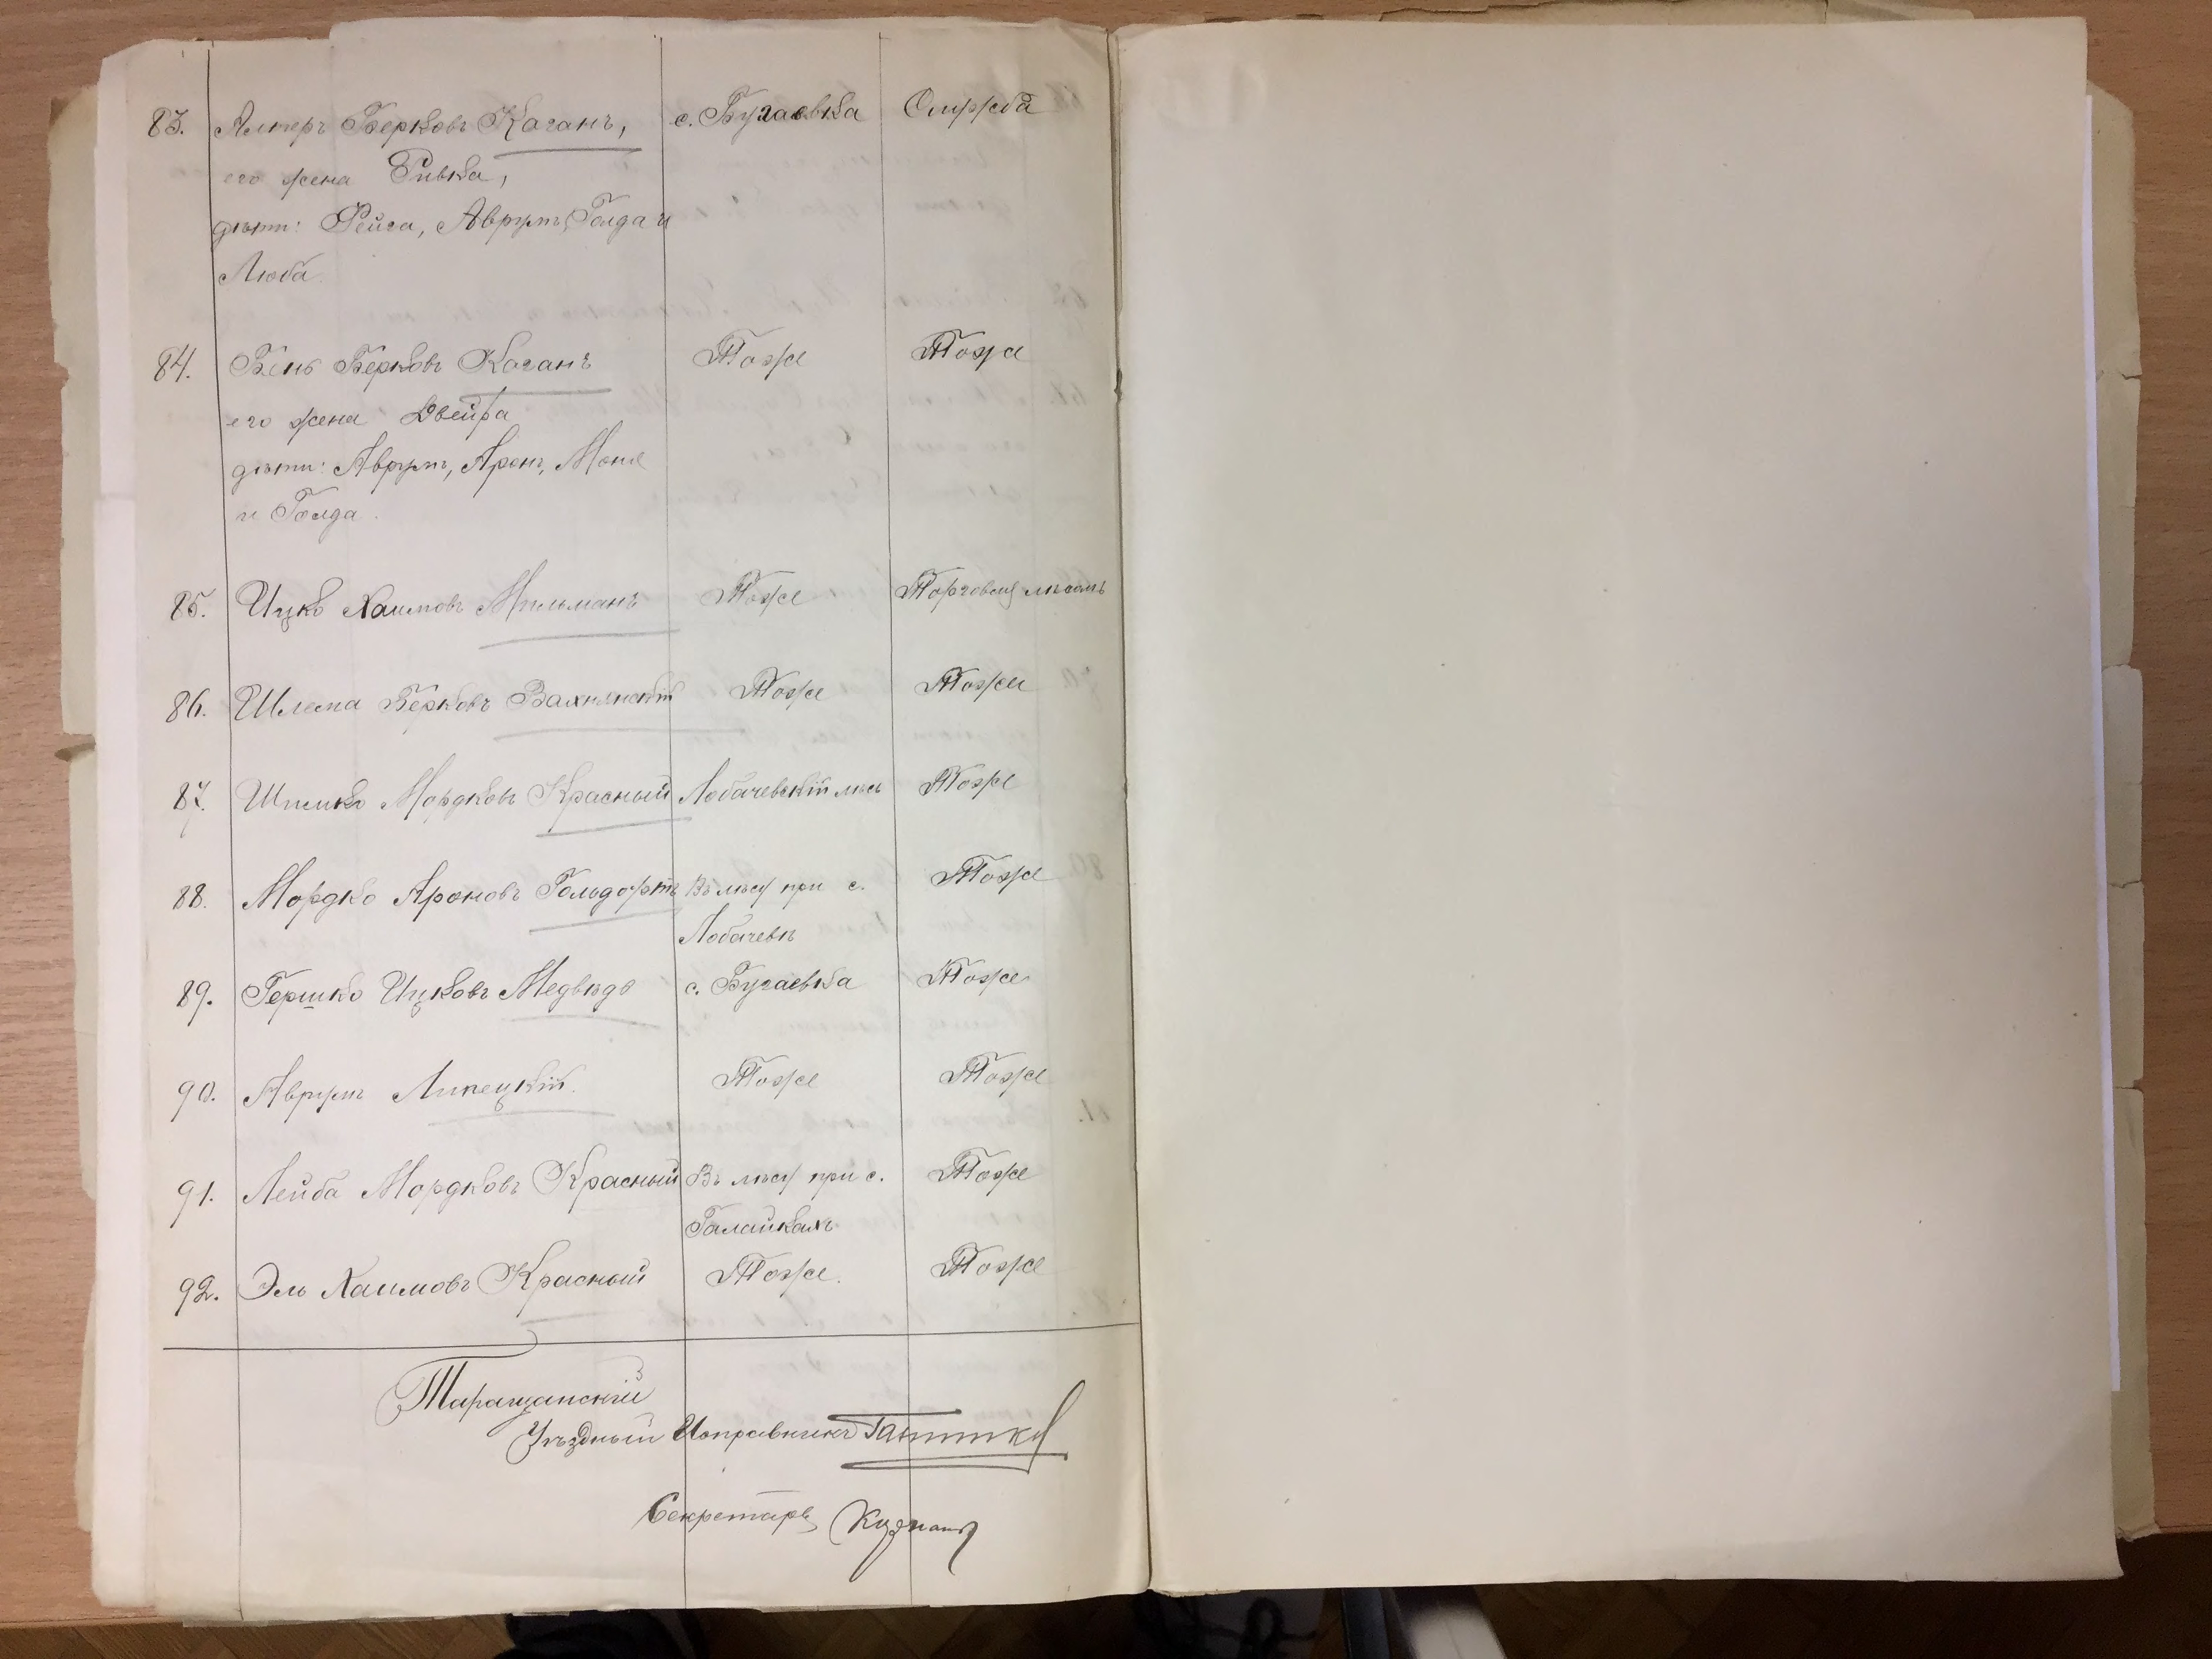 83. Алтеръ Берковъ Каганъ, с. Бугаевка Служба
его жена Ривка,
дѣти: Фейга, Аврумъ, Голда и
Люба.
84. Бень Берковъ Каганъ Тоже Тоже
его жена Двейра
дѣти: Аврумъ, Аронъ, Моня
и Голда.
85. Ицко Хаимовъ Мильманъ Тоже Торговец лѣсомъ
86. Шлема Берковъ Вахнянскій Тоже Тоже
87. Шимко Мордковъ Красный Лобачевскій лѣсъ Тоже
88. Мордко Ароновъ Гольдортъ Въ лѣсу при с. Тоже
Лобачевкѣ
89. Гершко Ицковъ Медвѣдь с. Бугаевка Тоже
90. Аврумъ Липецкій. Тоже Тоже
91. Лейба Мордковъ Красный Въ лѣсу при с. Тоже
Галайкахъ
92. Эль Хаимовъ Красный Тоже. Тоже
Таращанскій
Уѣздный Исправникъ
Секретарь